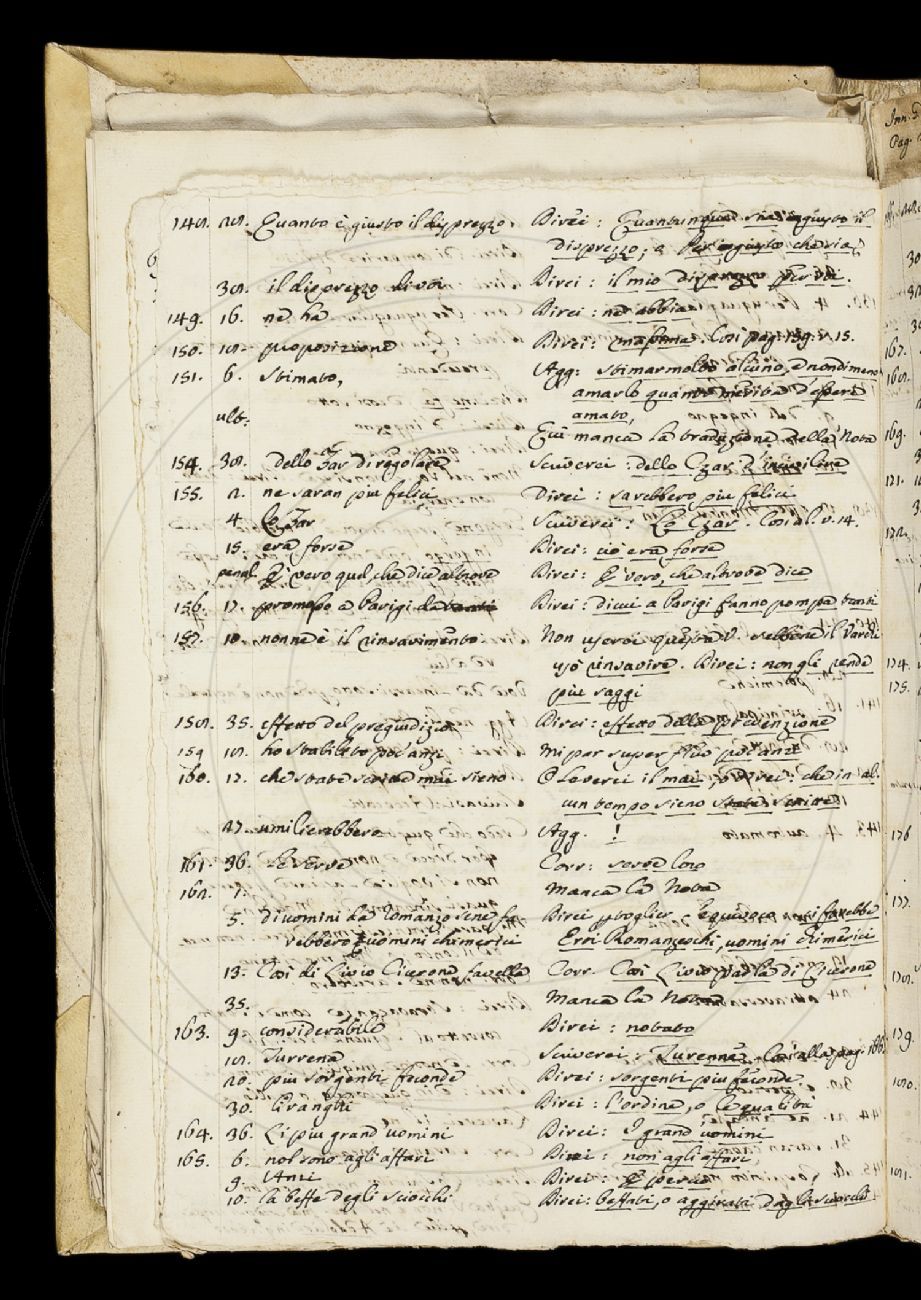 148. 28. Quanto è giusto il disprezzo. Direi: Quantunque sia ingiusto il
disprezzo, o Per ingiusto che sia
38. il disprezzo di voi Direi: il mio disprezzo per voi.
149. 16. ne ha Direi: ne abbia
150. 18. proposizione Direi: massima. Così pag. 159. v. 15.
151. 6. stimato, Agg: stimar molto alcuno, e nondimeno
amarlo quanto merita d'essere
amato,
ult. Qui manca la traduzione della Nota
154. 38. dello Zar di regolare Scriverei: dello Czar d'incivilire
155. 2. ne saran piu felici Direi: sarebbero piu felici
4. Lo Zar Scriverei: Lo Czar. Così al v. 14.
15. era forse Direi: ciò era forse
penul. E' vero quel che dice altrove Direi: E' vero, che altrove dice
156. 17. promosso a Parigi da tanti Direi: di cui a Parigi fanno pompa tanti
157. 10. non ne è il rinsavimento Non userei questa V. sebbene il Varchi
usò rinsavire. Direi: non gli rende
piu saggi
158. 35. effetto del pregiudizio Direi: effetto della prevenzione
159 18. ho stabilito poc'anzi Mi par superfluo poc'anzi
160. 17. che state scritte mai sieno O leverei il mai, o direi: che in al.
cun tempo sieno state scritte
27. umilierebbero Agg. !
161. 36. Le serve Corr: serve loro
162. 1. Manca la Nota
5. di uomini da romanzo se ne fa- Direi p toglier l'equivoco si farebbe
rebbero uomini chimerici Eroi Romanzeschi, uomini chimerici
13. Così di Livio Cicerone favella Corr. Così Livio parla di Cicerone
35. Manca la Nota
163. 9. considerabile Direi: notato
18. Turrena Scriverei: Turenna. Così alla pag. 166
20. piu sorgenti feconde Direi: sorgenti piu feconde
30. Li ranghi Direi: l'ordine, o le qualità
164. 36. Li piu grand uomini Direi: I grand'uomini
165. 6. nol sono agli affari Direi: non agli affari
9. Anzi Direi: E perciò
10. la beffe degli sciocchi Direi: beffati, o aggirati dagli sciocchi